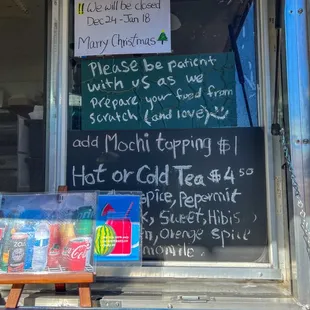 !! We will be closed
Dec 24 - Jan 18
Marry Christmas
Please be patient
with us as we
Prepare your food from
scratch (and love)
add Mochi topping $1
Hot or Cold Tea $4.50
spice, Pepermit
k, Sweet, Hibis
n, Orange spice
omile.
Coca-Cola